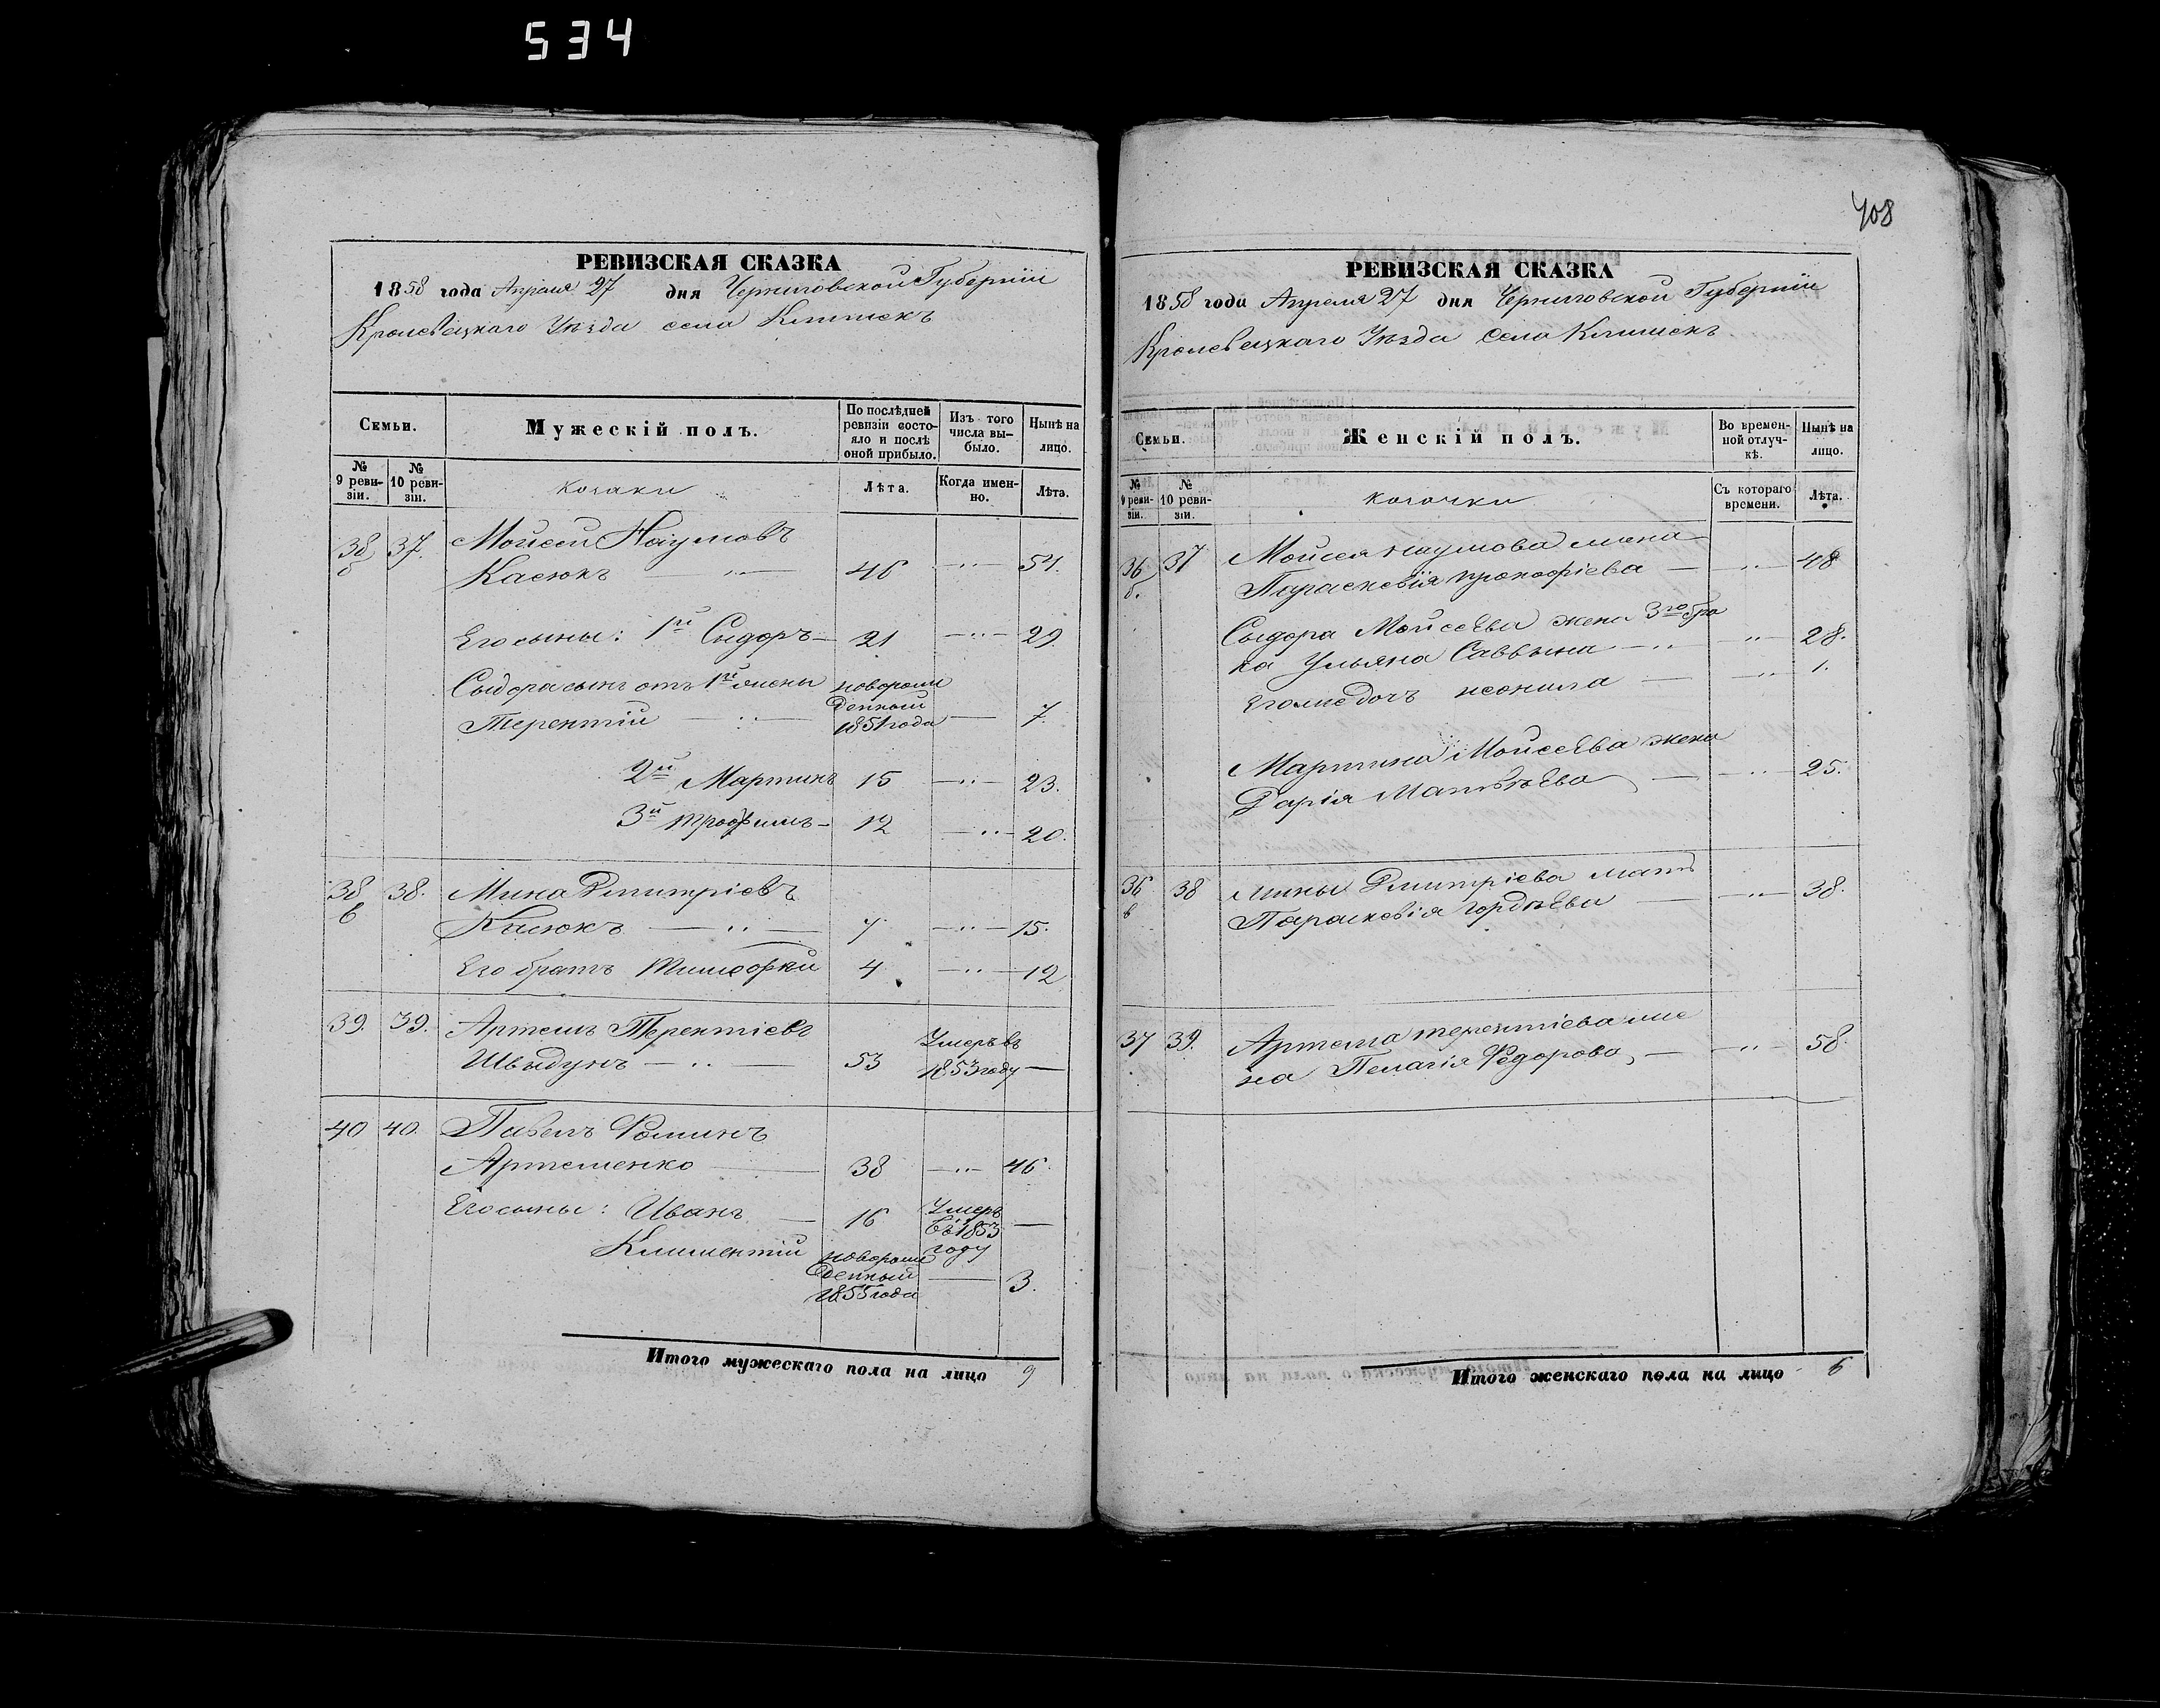 534
РЕВИЗСКАЯ СКАЗКА
1858 года Апреля 27 дня Черниговской Губерніи
Кролевецкаго Уѣзда села Клишекъ
Семьи.
Мужескій полъ.
По послѣдней ревизіи состояло и послѣ оной прибыло.
Изъ того числа выбыло.
Нынѣ на лицо.
№ 9 ревизіи.
№ 10 ревизіи.
козаки
Лѣта.
Когда именно.
Лѣта.
38 37. Мойсей Наумовъ
Касюкъ — 46 — 54.
Его сыны: 1й Сидоръ — 21 — 29.
Сидора сынъ отъ 1й жены новорож
Терентій — денный 1851 года — 7.
2й Мартинъ 15 — 23.
3й Трофимъ — 12 — 20.
38 в 38. Мина Дмитріевъ
Касюкъ — 7 — 15.
Его братъ Тимофей 4 — 12
39. 39. Артемъ Терентіевъ
Швыдунъ — 53 Умеръ въ 1853 году —
40 40. Павелъ Фоминъ
Артеменко — 38 — 46.
Его сыны: Иванъ — 16 Умеръ въ 1853 году —
Климентій новорож денный 1855 года — 3.
Итого мужескаго пола на лицо 9
408
РЕВИЗСКАЯ СКАЗКА
1858 года Апреля 27 дня Черниговской Губерніи
Кролевецкаго Уѣзда Села Клишекъ
Семьи.
Женскій полъ.
Во временной отлучкѣ.
Нынѣ на лицо.
№ 9 ревизіи.
№ 10 ревизіи.
козочки
Съ котораго времени.
Лѣта.
36 37 Мойсея Наумова жена
Параскевія Прокофіева — 48
Сыдора Мойсеева жена 3го бра
ка Ульяна Саввина — 28.
Его же дочь неонила — 1.
Мартина Мойсеева жена
Дарія Матвѣева — 25.
36 в 38 Мины Дмитріева мать
Параскевія Гордѣева — 38.
37 39. Артема терентіева же
на Пелагія Федорова, — 58.
Итого женскаго пола на лицо 6